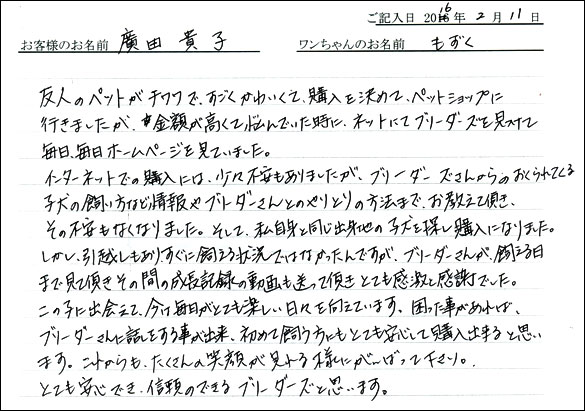 ご記入日 2016年 2月 11日
お客様のお名前 廣田 貴子 ワンちゃんのお名前 もずく
友人のペットがチワワで、すごくかわいくて、購入を決めて、ペットショップに
行きましたが、金額が高くて悩んでいた時に、ネットにてブリーダーズを見つけて
毎日、毎日ホームページを見ていました。
インターネットでの購入には、少々不安もありましたが、ブリーダーズさんからのおくられてくる
子犬の飼い方など情報やブリーダーさんとのやりとりの方法まで、お教えて頂き、
その不安もなくなりました。そして、私自身と同じ出身地の子犬を探し購入になりました。
しかし、引越しもありすぐに飼える状況ではなかったんですが、ブリーダーさんが、飼える日
まで見て頂きその間の成長記録の動画も送って頂きとても感激と感謝でした。
この子に出会えて、今は毎日がとても楽しい日々を向えています。困った事があれば、
ブリーダーさんに話をする事が出来、初めて飼う方にもとても安心して購入出来ると思い
ます。これからも、たくさんの笑顔が見れる様にがんばって下さい。
とても安心でき、信頼のできるブリーダーズと思います。